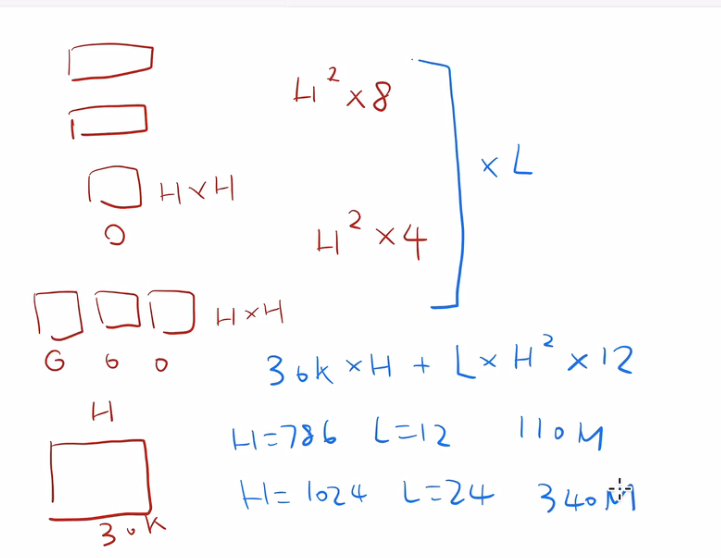 H² × 8
× L
H × H
O
H² × 4
H × H
G 6 0
30k × H + L × H² × 12
H
H = 786 L = 12 110M
H = 1024 L = 24 340M
30k